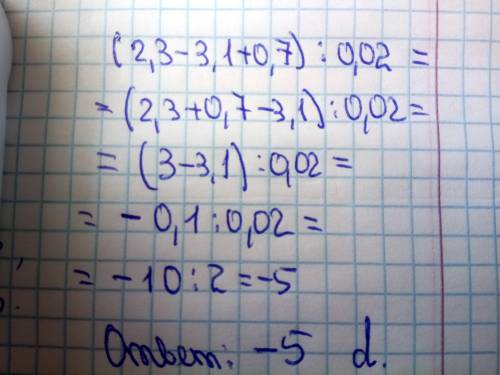 (2,3-3,1+0,7):0,02=
=(2,3+0,7-3,1):0,02=
=(3-3,1):0,02=
=-0,1:0,02=
=-10:2=-5
Ответ: -5 d.